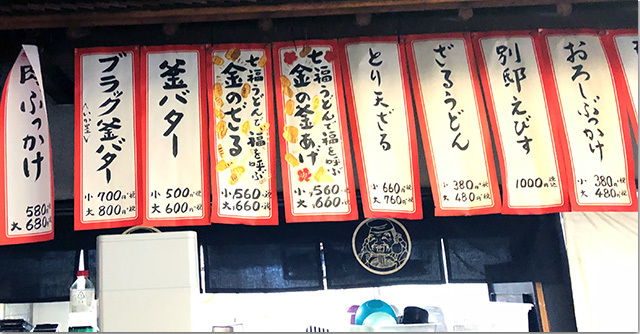 おろしぶっかけ
小 380円税
大 480円税
別邸えびす
1000円税込
ざるうどん
小 380円税
大 480円税
とり天ざる
小 660円税
大 760円税
七福うどんで福を呼ぶ
金の釜あげ
小 560円税
大 660円税
七福うどんで福を呼ぶ
金のざる
小 560円税
大 660円税
釜バター
小 500円税
大 600円税
ブラック釜バター
<いかすみ>
小 700円税
大 800円税
肉ぶっかけ
580円税
680円税